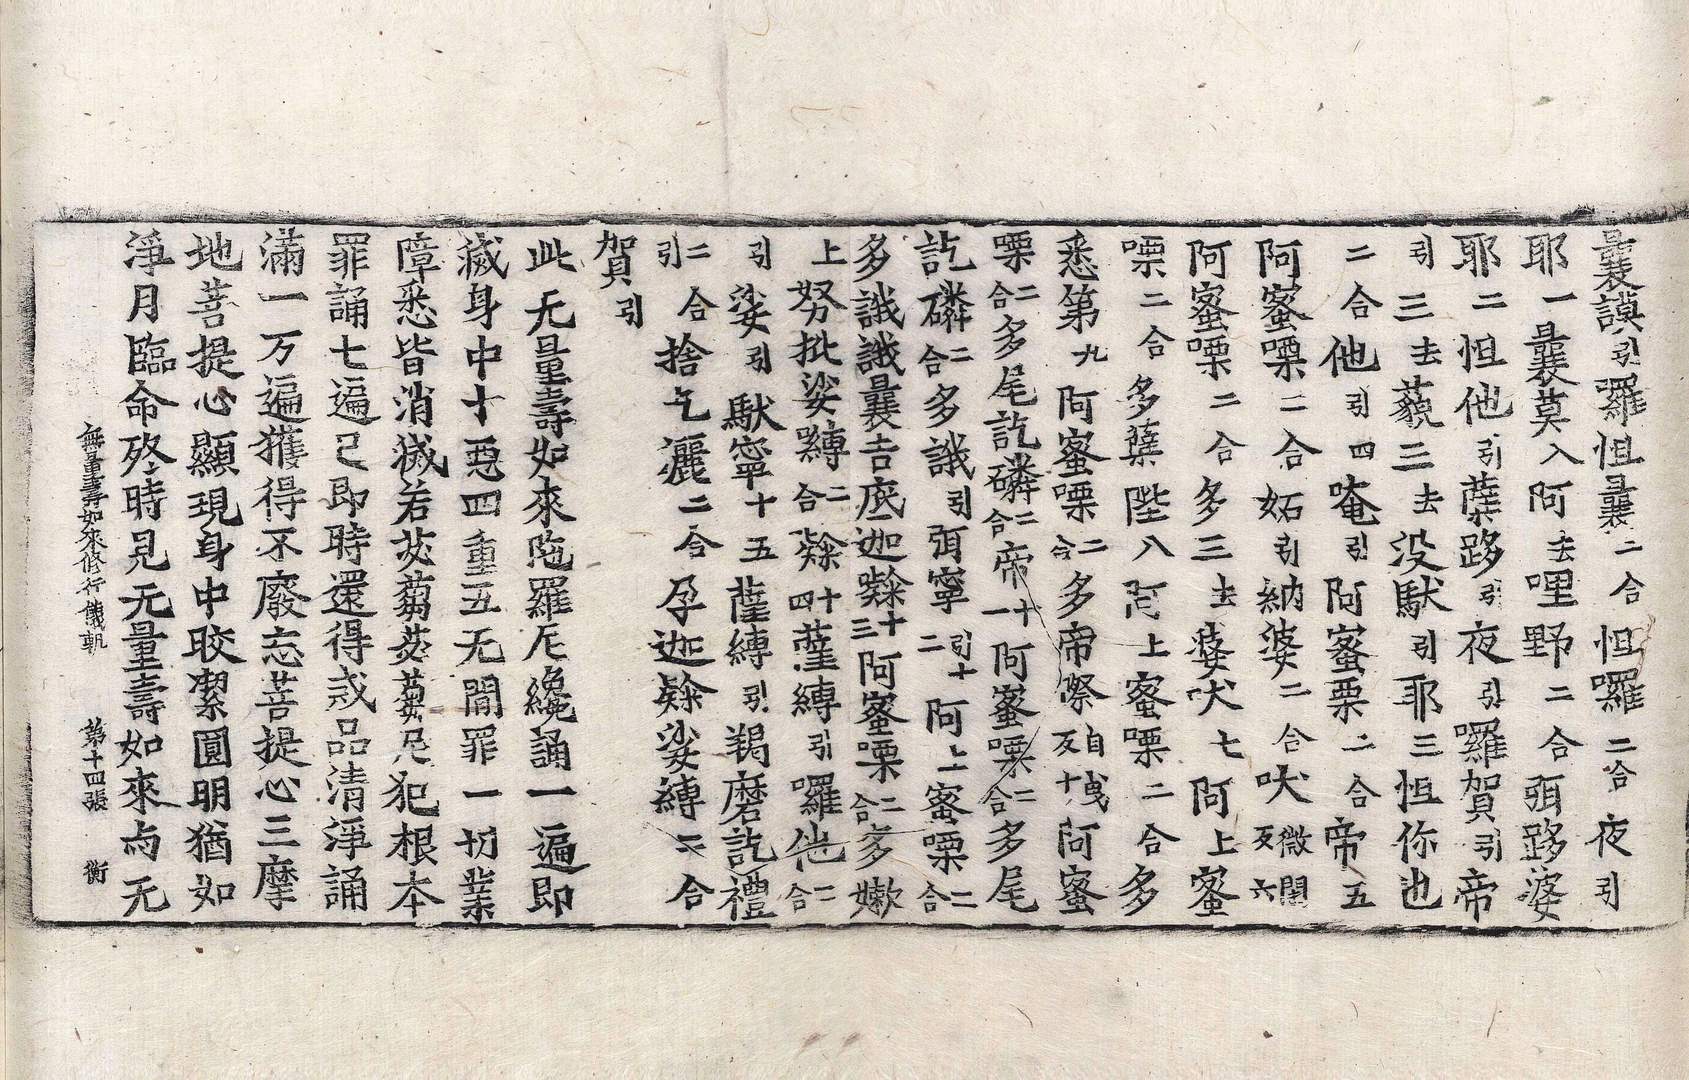 曩謨引羅怛曩二合怛囉二合夜引
耶一曩莫入阿去哩野二合弭路婆
耶二怛他引蘖路引夜引囉賀引帝
引三去藐三去没馱引耶三怛你也
二合他引四唵引阿蜜栗二合帝五
阿蜜㗚二合妬引納婆二合吠微閉反六
阿蜜㗚二合多三去婆吠七阿上蜜
㗚二合多蘖陛八阿上蜜㗚二合多
悉第九阿蜜㗚二合多帝際自曳反十阿蜜
㗚二合多尾訖磷二合帝十一阿蜜㗚二合多尾
訖磷二合多誐引弭寧引十二阿上蜜㗚二合
多誐誐曩吉底迦㘑十三阿蜜㗚二合多嫰
上努批娑嚩二合㘑十四薩嚩引囉他二合
引娑引馱寧十五薩嚩引羯磨訖禮
二合引捨乞灑二合孕迦㘑娑嚩二合
賀引
此无量壽如來陁羅尼纔誦一遍即
滅身中十惡四重五无閒罪一切業
障悉皆消滅若苾蒭苾蒭尼犯根本
罪誦七遍已即時還得戒品清淨誦
滿一万遍獲得不廢忘菩提心三摩
地菩提心顯現身中皎潔圓明猶如
淨月臨命終時見无量壽如來与无
無量壽如來修行儀軌 第十四張 衡